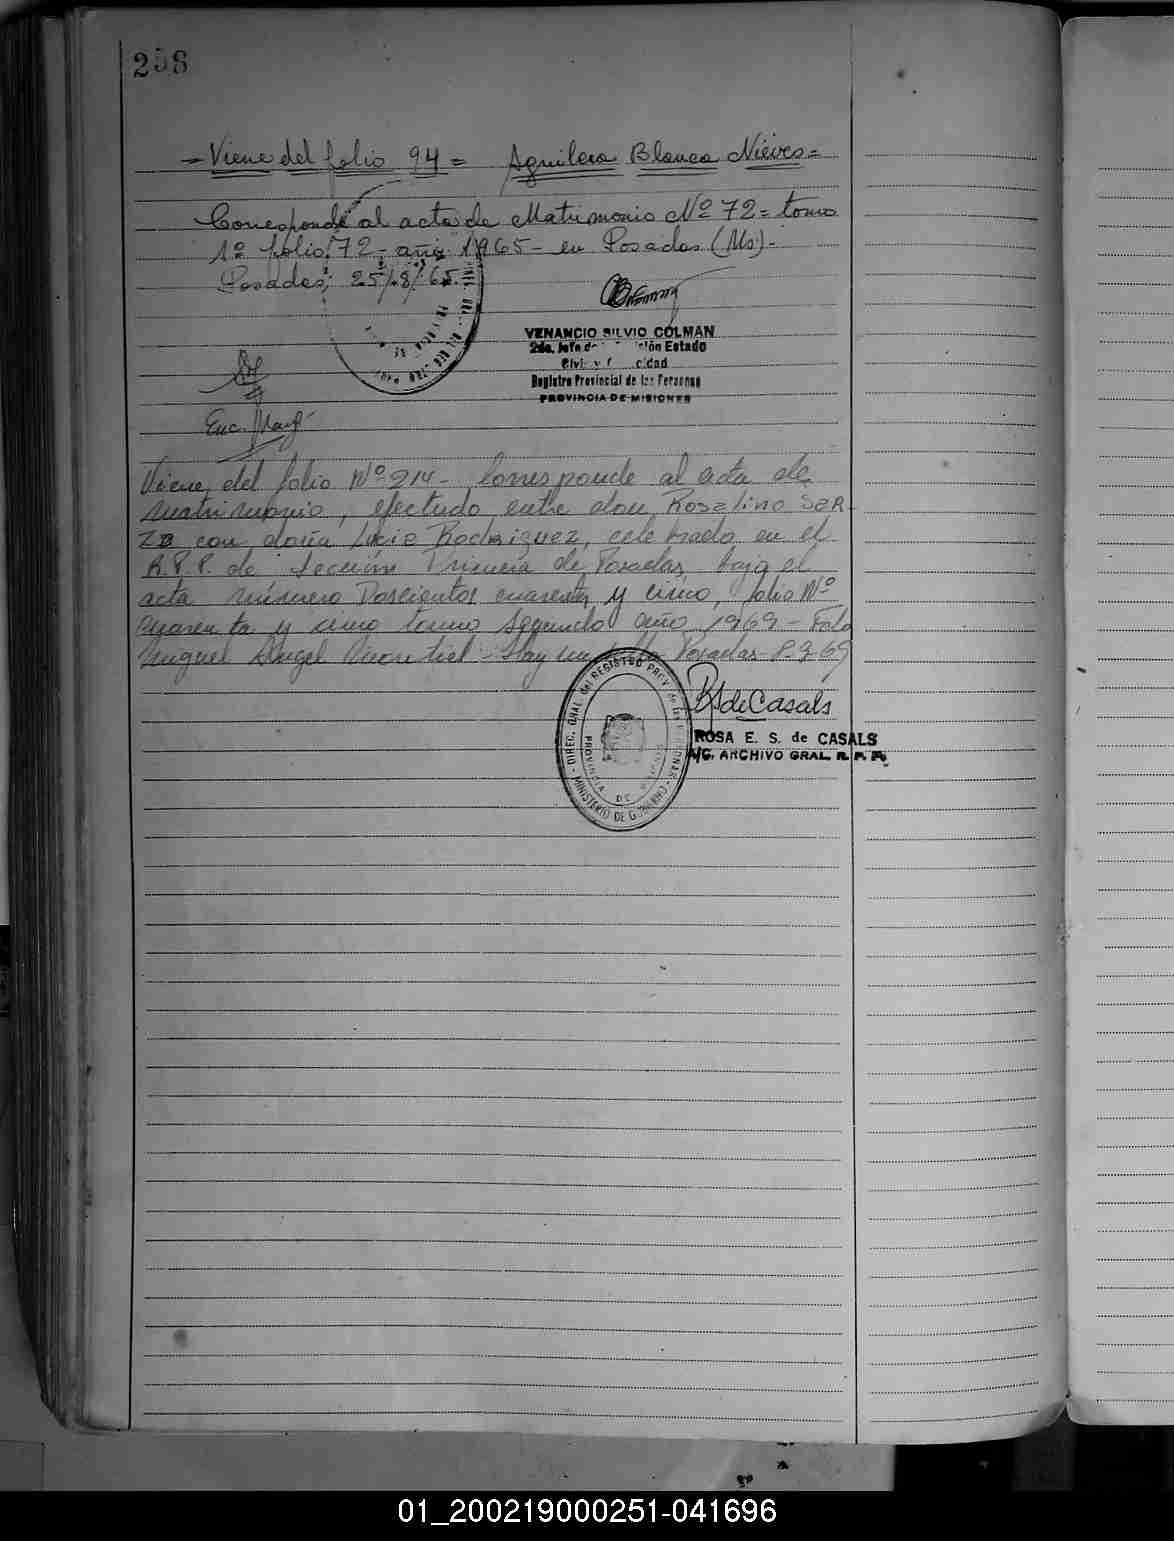 258
= Viene del folio 94 = Aguilera Blanca Nieves =
Corresponde al acta de Matrimonio Nº 72 = tomo
1º folio 72 - año 1965 - en Posadas (Ms) -
Posadas, 25/8/65.
VENANCIO SILVIO COLMAN
2do. Jefe Estado
Civil y
Registro Provincial de las Personas
PROVINCIA DE MISIONES
Enc.
Viene del folio Nº 214 - Corresponde al acta de
matrimonio, efectudo entre don Roselino SAR
ZA con doña Lucia Rodriguez, celebrado en el
R.P.P. de Sección Primera de Posadas bajo el
acta número Doscientos cuarenta y cinco, folio Nº
cuarenta y cinco tomo segundo año 1969 - Fdo
Miguel Angel - Hay un sello Posadas 8-9-69
DIREC. GRAL. del REGISTRO PROV. de las PERSONAS
PROVINCIA DE MISIONES
MINISTERIO DE GOBIERNO
RSdeCasals
ROSA E. S. de CASALS
A/C. ARCHIVO GRAL. R. P. P.
01_200219000251-041696